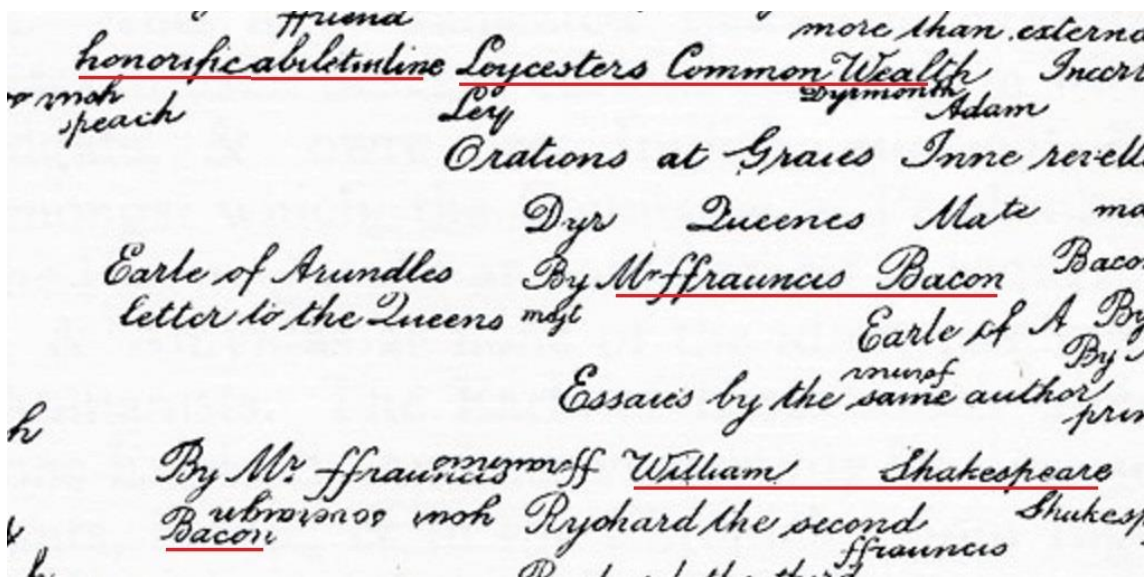 ffriend
more than externa
honorificabiletudine Loycesters Common Wealth Incer
speach Ley Dyrmonth Adam
Orations at Graies Inne revell
Dyr Queenes Mate
Earle of Arundles By Mr ffrauncis Bacon Bacon
Letter to the Queens matt
Earle of A By
By
Essaies by the same author
prin
By Mr ffrauncis William Shakespeare
Bacon your Rychard the second Shakesp
ffrauncis